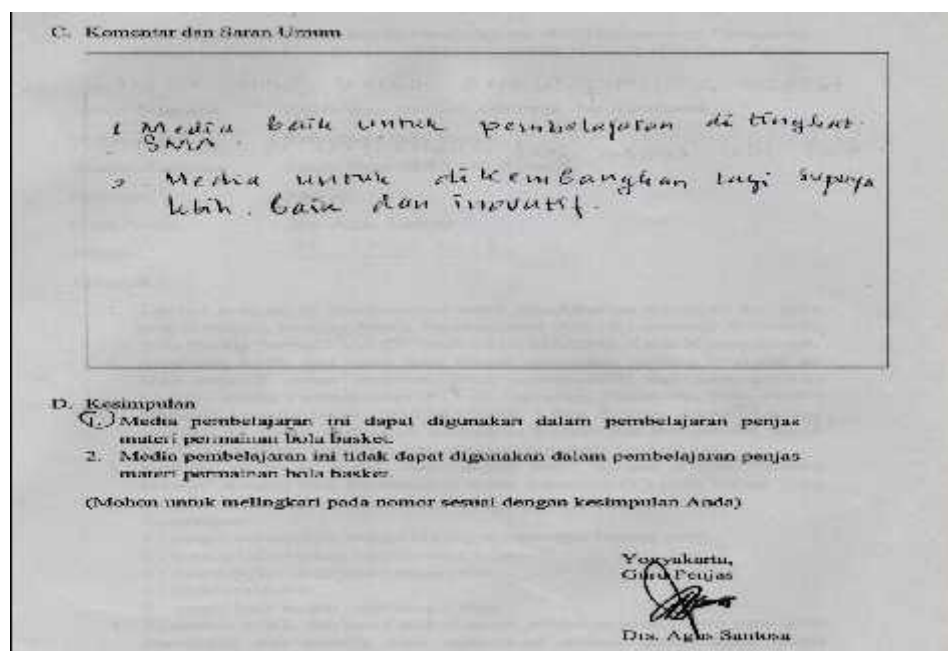 C. Komentar dan Saran Umum
1 Media baik untuk pembelajaran di tingkat
SMA.
2. Media untuk dikembangkan lagi supaya
lebih baik dan inovatif.
D. Kesimpulan
1. Media pembelajaran ini dapat digunakan dalam pembelajaran penjas
materi permainan bola basket.
2. Media pembelajaran ini tidak dapat digunakan dalam pembelajaran penjas
materi permainan bola basket.
(Mohon untuk melingkari pada nomor sesuai dengan kesimpulan Anda)
Yogyakarta,
Guru Penjas
Drs. Agus Santosa